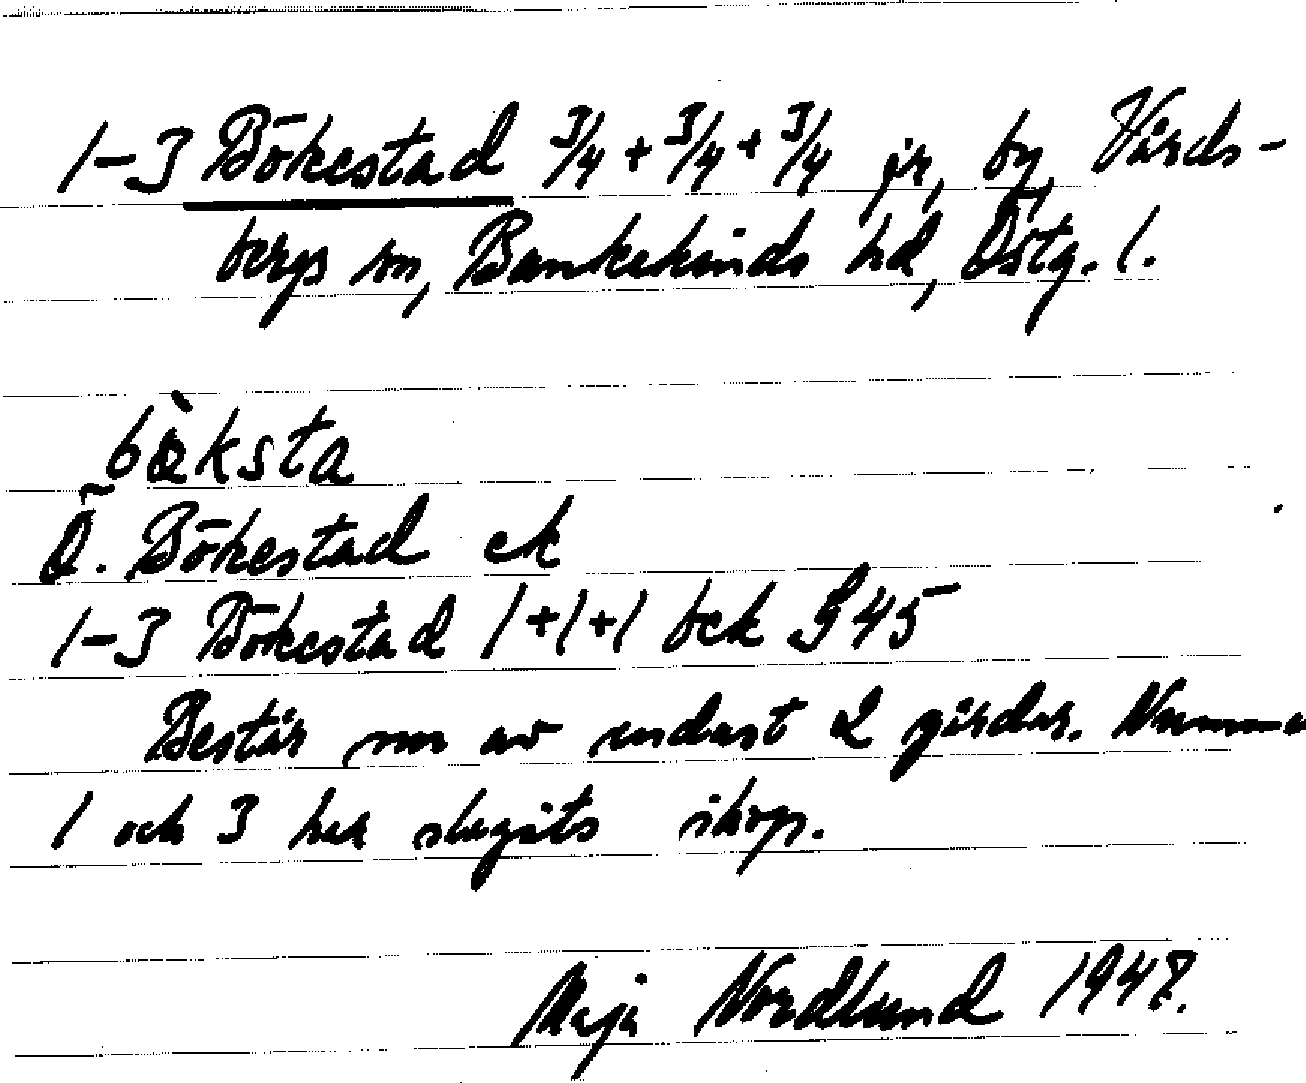 1-3 Bökestad 3/4 + 3/4 + 3/4 jr, by, Vårds-
bergs sn, Bankekinds hd, Östg. l.
Ö. Bökestad ek
1-3 Bökestad 1+1+1 bek J 45
Består nu av endast 2 gårdar.
1 och 3 har slagits ihop.
Maja Nordlund 1947.